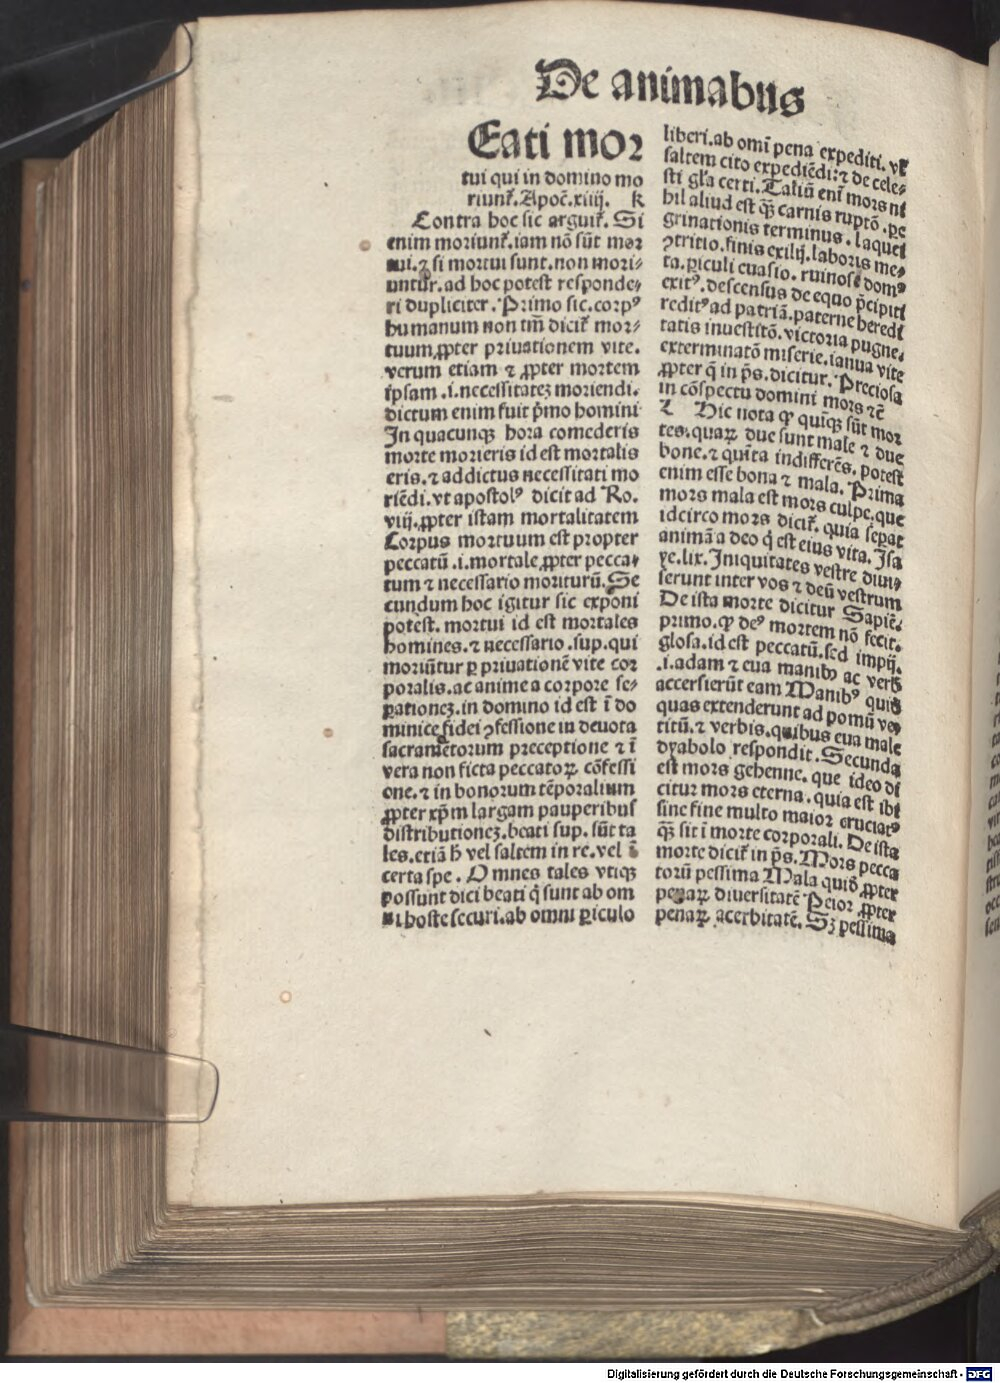 De animabus
Eati mor
tui qui in domino mo
riunt᷑. Apoc̄. xiiij. K
Contra hoc sic arguit᷑. Si
enim moriunt᷑. iam nō sūt mor
tui. ⁊ si mortui sunt. non mori-
untur. ad hoc potest responde-
ri dupliciter. Primo sic. corpꝰ
humanum non tm̄ dicit᷑ mor-
tuum ꝓpter priuationem vite.
verum etiam ⁊ ꝓpter mortem
ipsam .i. necessitatez moriendi.
dictum enim fuit p̄mo homini
In quacunqꝫ hora comederis
morte morieris id est mortalis
eris. ⁊ addictus necessitati mo
riēdi. vt apostolꝰ dicit ad Ro.
viij. ꝓpter istam mortalitatem
Corpus mortuum est propter
peccatū .i. mortale ꝓpter pecca-
tum ⁊ necessario moriturū. Se
cundum hoc igitur sic exponi
potest. mortui id est mortales
homines. ⁊ necessario .sup. qui
moriūtur ꝑ priuationē vite cor
poralis. ac anime a corpore se-
ꝑationez. in domino id est ī do
minice fidei ꝯfessione in deuota
sacramētorum preceptione ⁊ ī
vera non ficta peccatoꝝ cōfessi
one. ⁊ in bonorum tēporalium
ꝓpter xp̄m largam pauperibus
distributionez. beati sup. sūt ta
les. etiā h̄ vel saltem in re. vel ī
certa spe. Omnes tales vtiqꝫ
possunt dici beati q̄ sunt ab om
ni hoste securi. ab omni ꝑiculo
liberi. ab omī pena expediti. vt᷑
saltem cito expediēdi: ⁊ de cele-
sti gl̄a certi. Taliū enī mors ni
hil aliud est qꝫ̄ carnis ruptō. ꝑe
grinationis terminus. laquei
ꝯtritio. finis exilij. laboris me-
ta. ꝑiculi euasio. ruinosi domꝰ
exitꝰ. descensus de equo p̄cipiti
reditꝰ ad patriā. paterne heredi
tatis inuestitō. victoria pugne.
exterminatō miserie. ianua vite
ꝓpter q̄ in ps̄. dicitur. Preciosa
in cōspectu domini mors ⁊c̄
L Hic nota ꝙ quīqꝫ sūt mor
tes. quaꝝ due sunt male ⁊ due
bone. ⁊ quīta indifferēs. potest
enim esse bona ⁊ mala. Prima
mors mala est mors culpe. que
idcirco mors dicit᷑. quia seꝑat
animā a deo q̄ est eius vita. Isa
ye. lix. Iniquitates vestre diui-
serunt inter vos ⁊ deū vestrum
De ista morte dicitur Sapiē.
primo. ꝙ deꝰ mortem nō fecit.
glosa. id est peccatū. sed impij.
.i. adam ⁊ eua manibꝰ ac verb̄
accersierūt eam Manibꝰ quid̄
quas extenderunt ad pomū ve-
titū. ⁊ verbis. quibus eua male
dyabolo respondit. Secunda
est mors gehenne. que ideo di
citur mors eterna. quia est ibi
sine fine multo maior cruciatꝰ
qꝫ̄ sit ī morte corporali. De ista
morte dicit᷑ in ps̄. Mors pecca
torū pessima Mala quid̄ ꝓpter
penaꝝ diuersitatē Peior ꝓpter
penaꝝ acerbitatē. Sꝫ pessima
Digitalisierung gefördert durch die Deutsche Forschungsgemeinschaft - DFG